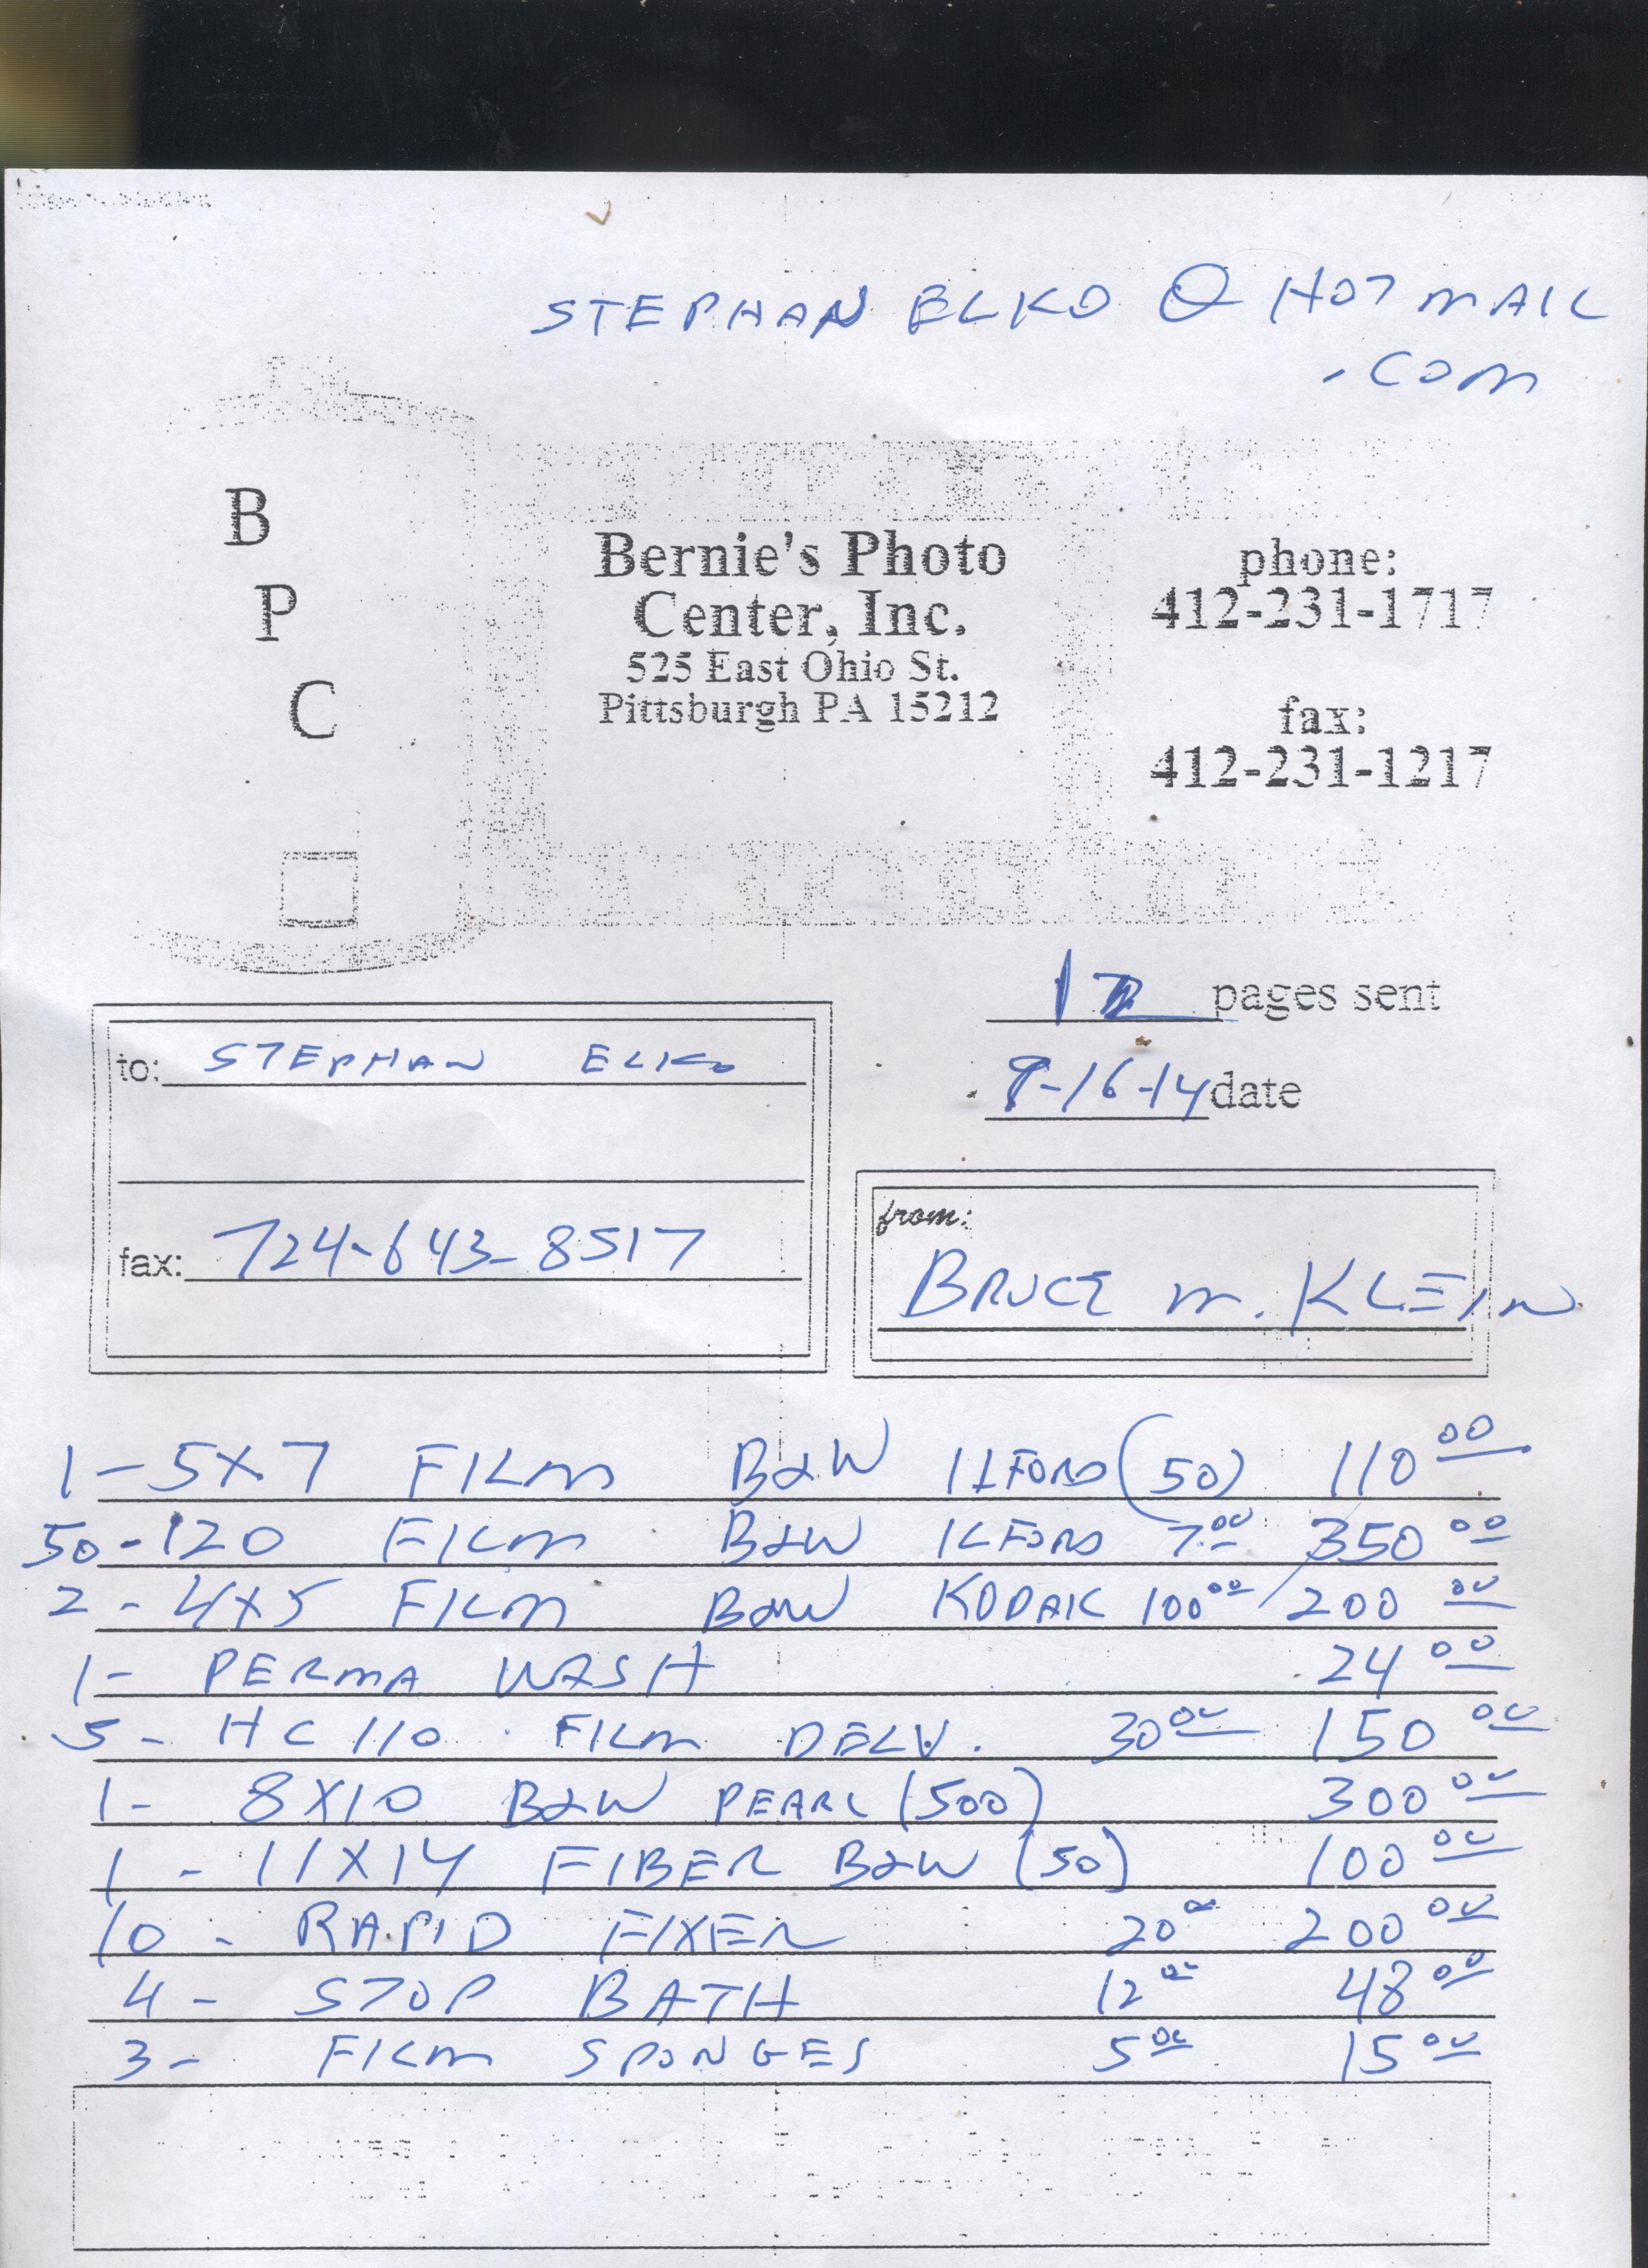 STEPHAN ELKO @ HOTMAIL
.COM
B
P
C
Bernie's Photo
Center, Inc.
525 East Ohio St.
Pittsburgh PA 15212
phone:
412-231-1717
fax:
412-231-1217
pages sent
9-16-14 date
to: STEPHAN ELKO
fax: 724-643-8517
from:
BRUCE M. KLEIN
1-5X7 FILM B&W ILFORD (50) 110 00
50-120 FILM B&W ILFORD 7.00 350 00
2-4X5 FILM B&W KODAK 100 00 / 200 00
1- PERMA WASH 24 00
5- HC 110 FILM DELV. 30 00 150 00
1- 8X10 B&W PEARL (500) 300 00
1- 11X14 FIBER B&W (50) 100 00
10- RAPID FIXER 20 00 200 00
4- STOP BATH 12 00 48 00
3- FILM SPONGES 5 00 15 00